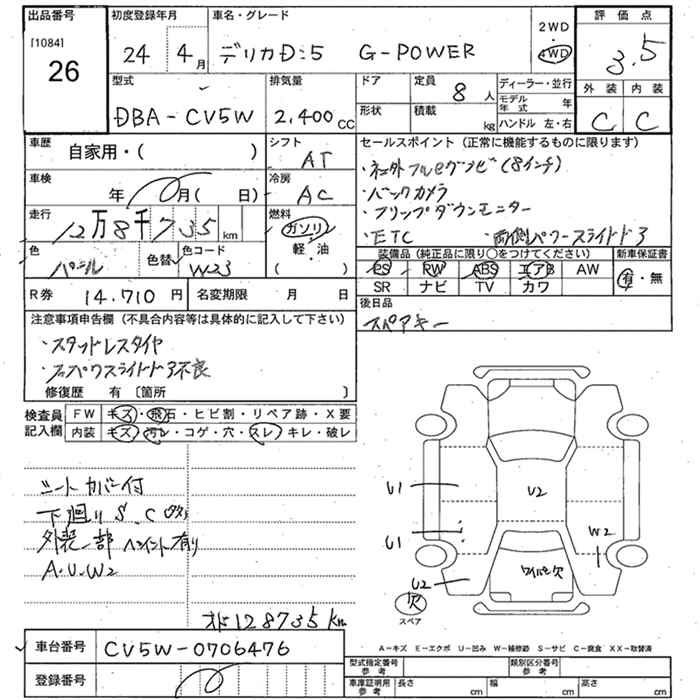 出品番号 初度登録年月 車名・グレード 2WD・4WD 評価点
[1084] 26 24 4月 デリカD:5 G-POWER 3.5
型式 排気量 ドア 定員 8人 ディーラー・並行 外装 内装
DBA-CV5W 2,400CC 形状 積載 kg モデル年式 年 C C
ハンドル 左・右
車歴 自家用・( ) シフト AT セールスポイント (正常に機能するものに限ります)
車検 年 月( 日) 冷房 AC ・社外フルセグナビ(8インチ)
・バックカメラ
走行 12万8千735km 燃料 ガソリン 軽・油 ( ) ・フリップダウンモニター
・ETC ・両側パワースライドドア
色 パール 色替 色コード W23 装備品 (純正品に限り○をつけてください) 新車保証書
PS RW ABS エアB AW 有・無
SR ナビ TV カワ
R券 14.710円 名変期限 月 日 後日品
スペアキー
注意事項申告欄 (不具合内容等は具体的に記入して下さい)
・スタッドレスタイヤ
パワスライドドア不良
修復歴 有 [箇所 ]
検査員記入欄 FW キズ・飛石・ヒビ割・リペア跡・X要
内装 キズ・汚レ・コゲ・穴・スレ・キレ・破レ
シートカバー付
下廻りS.C
外装一部ペイント有り
A.U.W2
オド128735km
U1 U2 U1 W2 U2 ワイパー欠 欠 スペア
A-キズ E-エクボ U-凹み W-補修跡 S-サビ C-腐食 XX-取替済
車台番号 CV5W-0706476
登録番号
型式指定番号参考 類別区分番号参考
車庫証明用参考 長さ cm 幅 cm 高さ cm